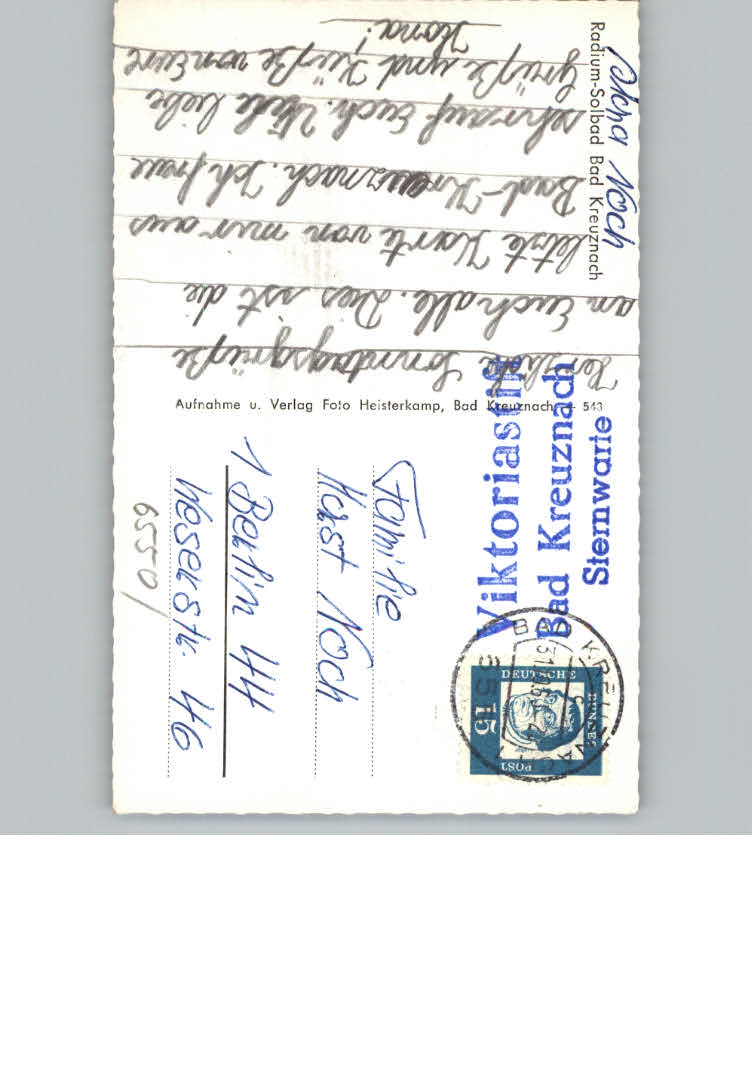 Radium-Solbad Bad Kreuznach
Ilona Noch
Herzliche Sonntagsgrüße
an Euch alle. Dies ist die
letzte Karte von mir aus
Bad-Kreuznach. Ich freue
sehr auf Euch. Viele liebe
Grüße und Küße von Eure
Ilona!
Aufnahme u. Verlag Foto Heisterkamp, Bad Kreuznach — 543
Viktoriastift
Bad Kreuznach
Sternwarte
BAD KREUZNACH
DEUTSCHE
BUNDES
POST
15
Familie
Horst Noch
1 Berlin 44
Weserstr. 46
6550/